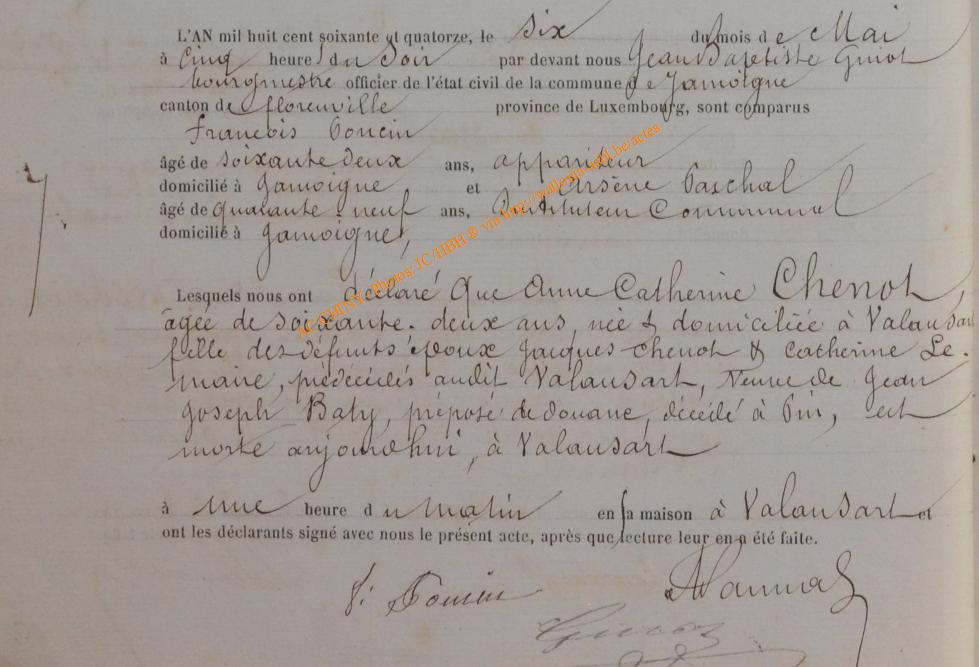 L'AN mil huit cent soixante et quatorze, le six du mois de Mai
à Cinq heures du Soir par devant nous Jean Baptiste Guiot
bourgmestre officier de l'état civil de la commune de Jamoigne
canton de florenville province de Luxembourg, sont comparus
françois
âgé de soixante deux ans, appariteur
domicilié à Jamoigne et Arsène Paschal
âgé de Quarante neuf ans, Instituteur Communal
domicilié à Jamoigne,
Lesquels nous ont déclaré Que Anne Catherine Chenot,
âgée de soixante-deux ans, née & domiciliée à Valansart
fille des défunts époux Jacques Chenot & Catherine Le-
maire, prédécédés audit Valansart, Veuve de Jean
Joseph Baty, préposé de douane, décédé à Pin, est
morte aujourd'hui, à Valansart
à une heure du matin en sa maison à Valansart et
ont les déclarants signé avec nous le présent acte, après que lecture leur en a été faite.
f:
Guiot